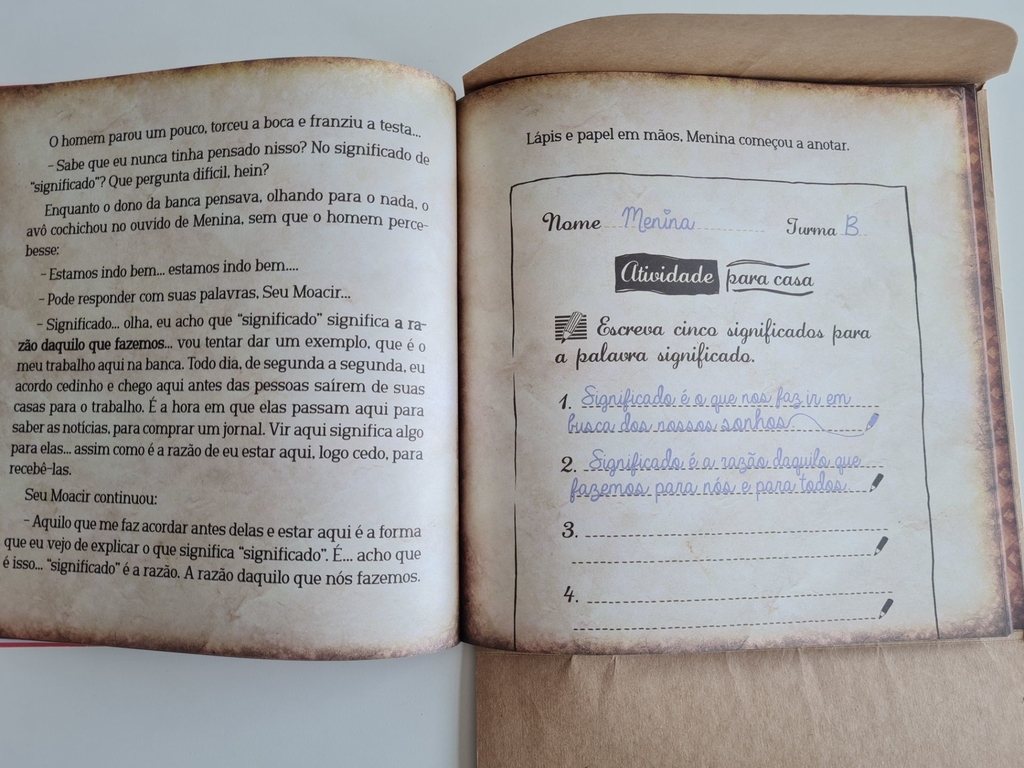 O homem parou um pouco, torceu a boca e franziu a testa...
– Sabe que eu nunca tinha pensado nisso? No significado de
“significado”? Que pergunta difícil, hein?
Enquanto o dono da banca pensava, olhando para o nada, o
avô cochichou no ouvido de Menina, sem que o homem perce-
besse:
– Estamos indo bem... estamos indo bem....
– Pode responder com suas palavras, Seu Moacir...
– Significado... olha, eu acho que “significado” significa a ra-
zão daquilo que fazemos... vou tentar dar um exemplo, que é o
meu trabalho aqui na banca. Todo dia, de segunda a segunda, eu
acordo cedinho e chego aqui antes das pessoas saírem de suas
casas para o trabalho. É a hora em que elas passam aqui para
saber as notícias, para comprar um jornal. Vir aqui significa algo
para elas... assim como é a razão de eu estar aqui, logo cedo, para
recebê-las.
Seu Moacir continuou:
– Aquilo que me faz acordar antes delas e estar aqui é a forma
que eu vejo de explicar o que significa “significado”. É... acho que
é isso... “significado” é a razão. A razão daquilo que nós fazemos.
Lápis e papel em mãos, Menina começou a anotar.
Nome Menina Turma B
Atividade para casa
Escreva cinco significados para
a palavra significado.
1. Significado é o que nos faz ir em
busca dos nossos sonhos
2. Significado é a razão daquilo que
fazemos para nós e para todos.
3.
4.